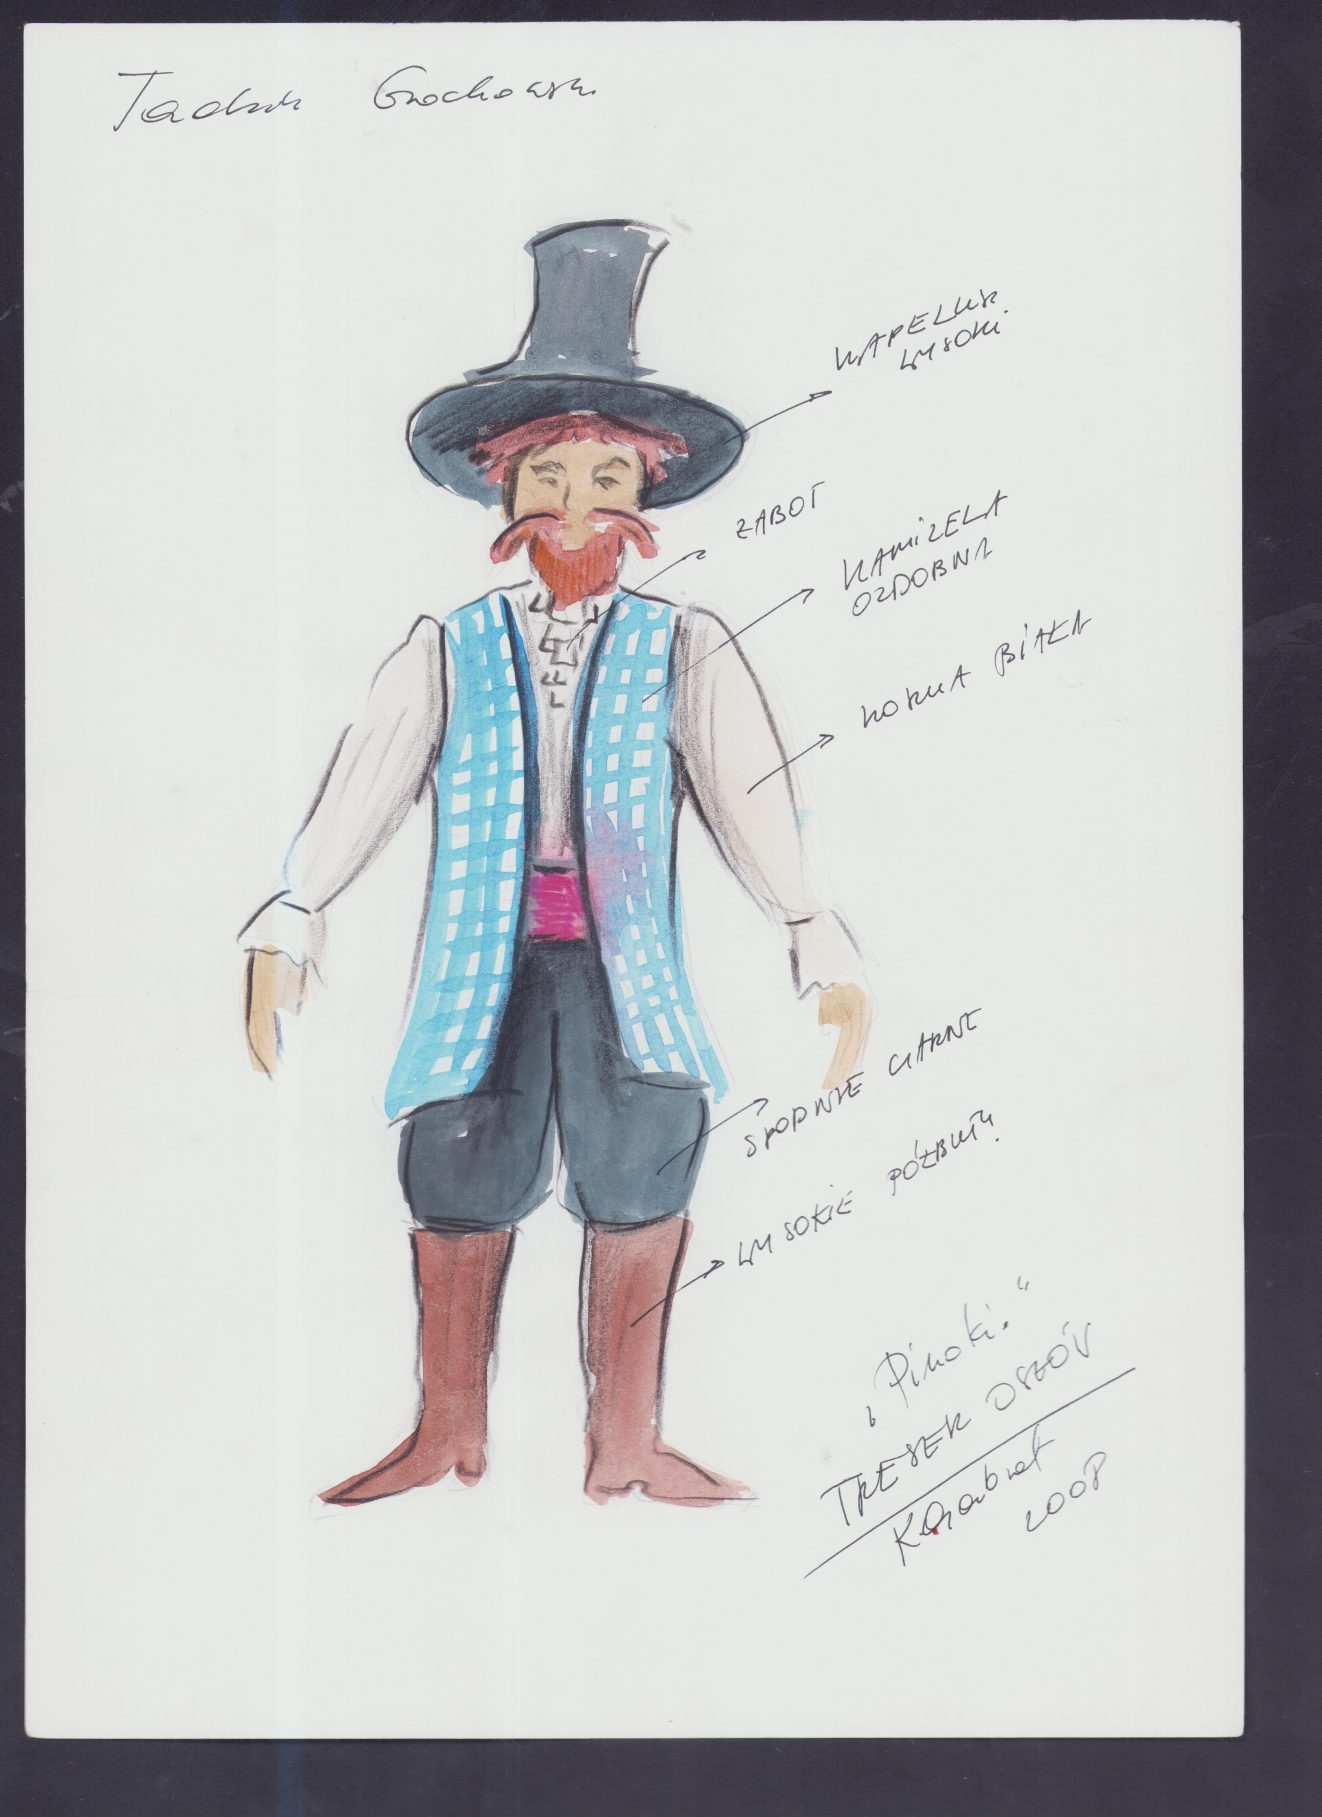 Tadeusz Grochowski
KAPELUSZ
WYSOKI
ŻABOT
KAMIZELA
OZDOBNA
KOSZULA BIAŁA
SPODNIE CZARNE
WYSOKIE
„Pinokio"
TRESER OSŁÓW
2008